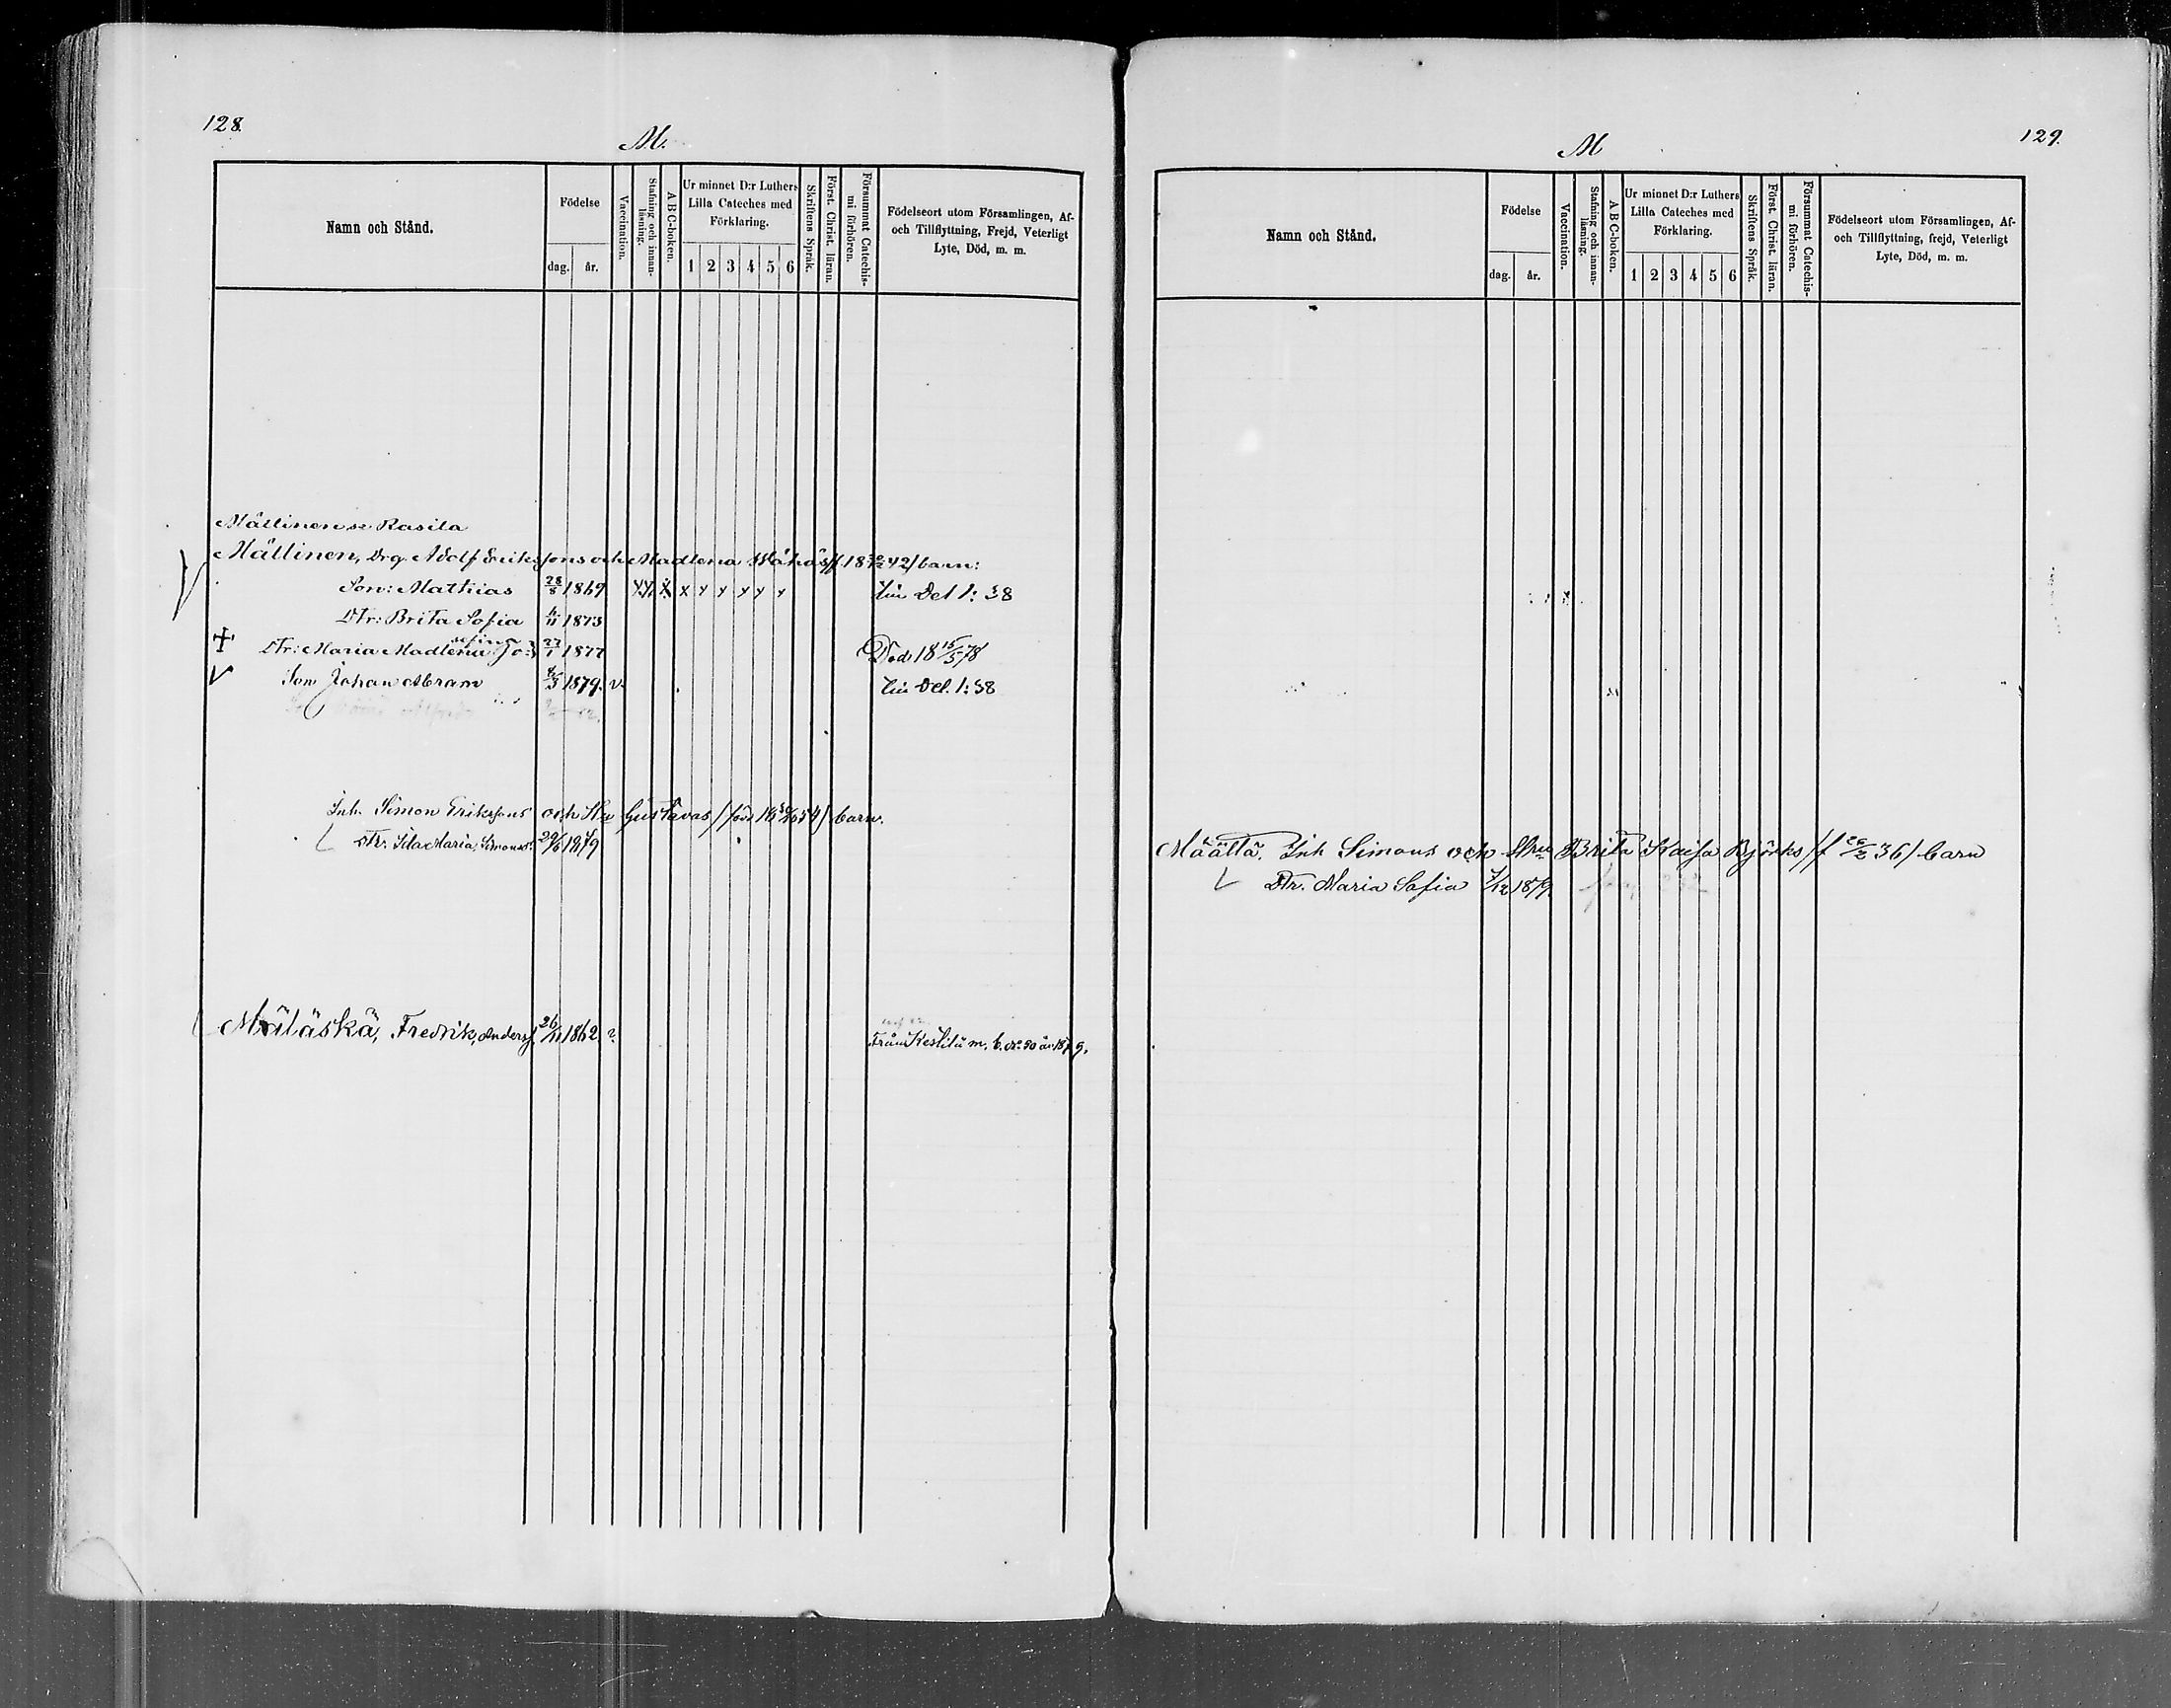 128.
M.
Namn och Stånd.
Födelse
dag.
år.
Vaccination.
Stafning och innanläsning.
A B C-boken.
Ur minnet D:r Luthers
Lilla Cateches med
Förklaring.
1 2 3 4 5 6
Skriftens Språk.
Först. Christ. läran.
Försummat Catechismi förhören.
Födelseort utom Församlingen, Af-
och Tillflyttning, Frejd, Veterligt
Lyte, Död, m. m.
Mällinen se Rasila
Mällinen, Drg. Adolf Eriksons och Madlena 42/ barn:
Son: Mathias 28/8 1869 x x x x x x Del 1: 38
Dtr: Brita Sofia 1873
Dtr: Maria Madlena 27/1 1877 Död 18 15/5 78
Son Johan Abram 1879. v. Del. 1:38
Inh. Simon Eriksons och Hu Gustavas / barn.
Dtr. Maria, Simonsd. 1879
Mäläskä, Fredrik, Anders 26/11 1862 Från Kestilä m. b. 1879.
129.
M
Namn och Stånd.
Födelse
dag.
år.
Vaccination.
Stafning och innanläsning.
A B C-boken.
Ur minnet D:r Luthers
Lilla Cateches med
Förklaring.
1 2 3 4 5 6
Skriftens Språk.
Först. Christ. läran.
Försummat Catechismi förhören.
Födelseort utom Församlingen, Af-
och Tillflyttning, frejd, Veterligt
Lyte, Död, m. m.
Määttä. Inh Simons och Hru Brita Kaisa Björks /f 36/ barn
Dtr. Maria Sofia 7/12 1879.